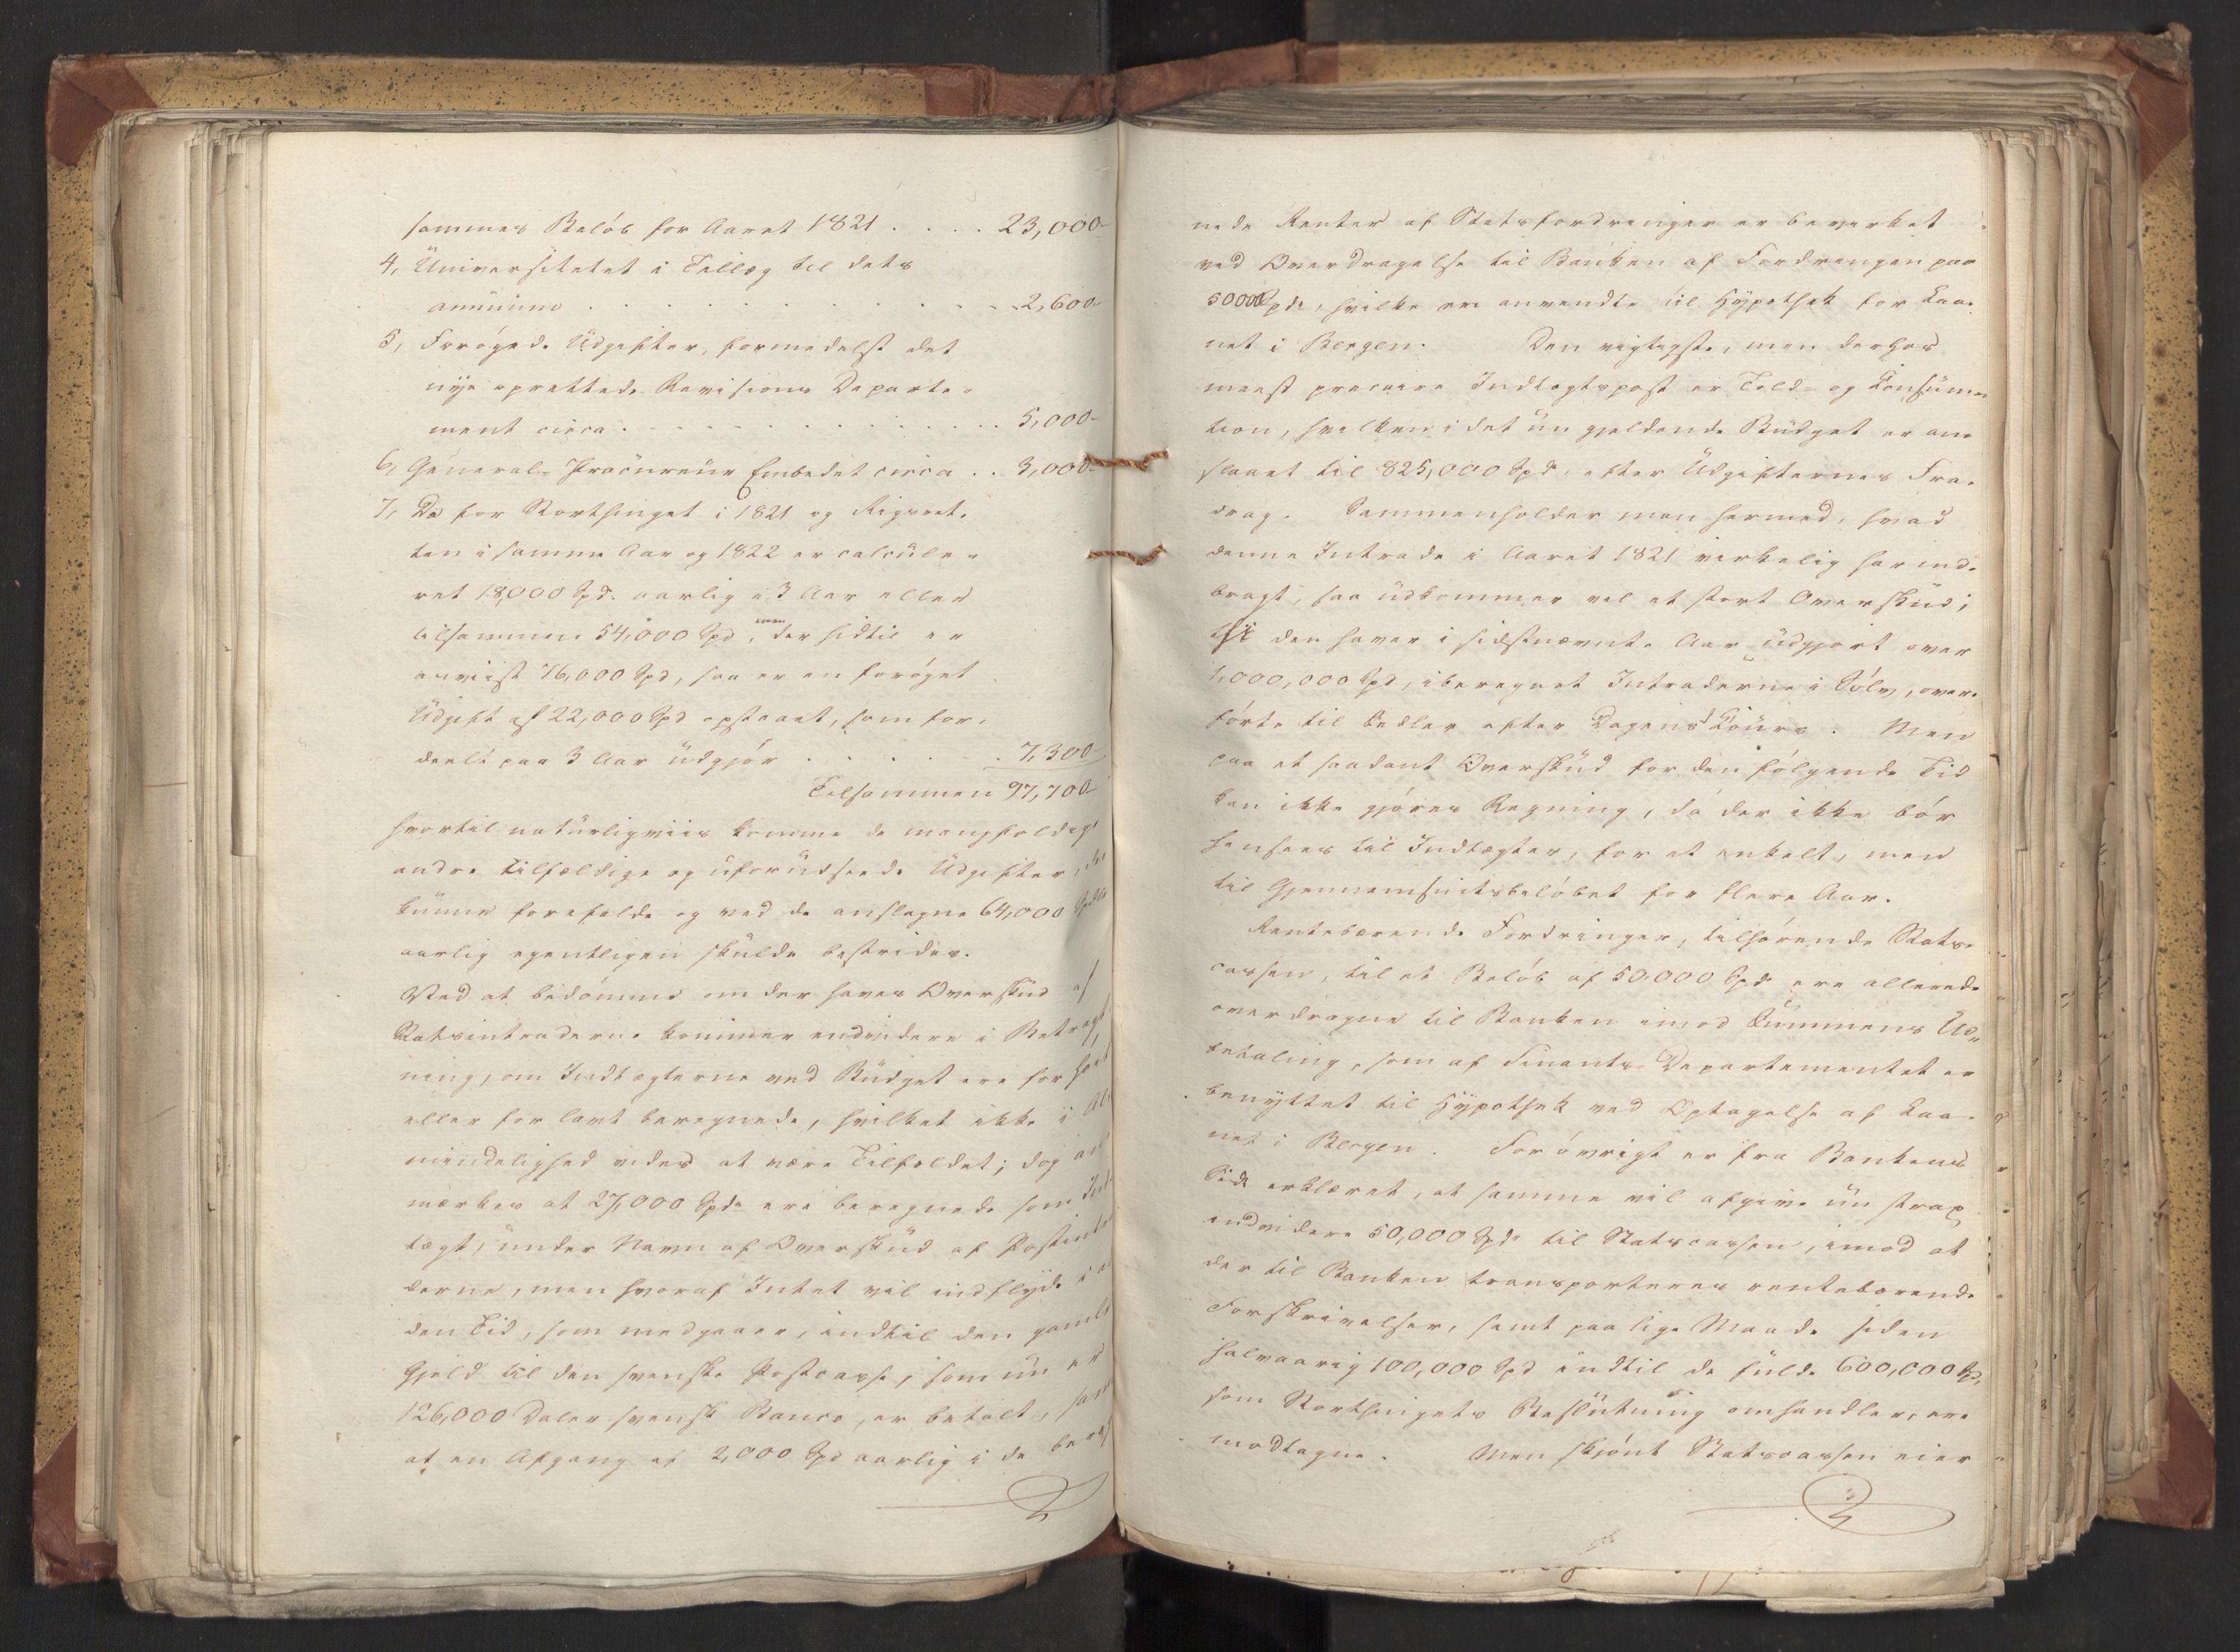 sammes Beløb for Aaret 1821 . . . . 23,000-
4, Universitetet i Tillæg til dets
annuum . . . . . . . . . . . 2,600-
5, Forøgede Udgifter, formedelst det
nye oprettede Revisions Departe-
ment circa . . . . . . . . . . . 5,000-
6, General-Procureur Embedet circa . . 3,000-
7, Da for Storthinget i 1821 og Rigsret-
ten i samme Aar og 1822 er calcule-
ret 18,000 Spd. aarlig i 3 Aar eller
tilsammen 54,000 Spd, men der hidtil er
anviist 76,000 Spd, saa er en forøget
Udgift af 22,000 Spd opstaaet, som for-
deelt paa 3 Aar udgjør . . . . . 7,300-
Tilsammen 97,700-
hvortil naturligviis komme de mangfoldige
andre tilfældige og uforudseede Udgifter, der
kunne forefalde og ved de anslagne 64,000 Spdlr
aarlig egentligen skulde bestrides.
Ved at bedømme om der haves Overskud af
Statsintraderne kommer endvidere i Betragt-
ning, om Indtægterne ved Budget ere for høit
eller for lavt beregnede, hvilket ikke i Al-
mindelighed vides at være Tilfældet; dog an-
mærkes at 27,000 Spdr ere beregnede som Ind-
tægt, under Navn af Overskud af Postintra-
derne, men hvoraf Intet vil indflyde i al
den Tid, som medgaaer, indtil den gamle
Gjeld til den svenske Postcasse, som nu er
126,000 Daler svensk Banco, er betalt, samt
at en Afgang af 2,000 Spd aarlig i de bereg-
nede Renter af Statsfordringer er bevirket
ved Overdragelse til Banken af Fordringen paa
50000 Spdr, hvilke ere anvendte til Hypothek for Laa-
net i Bergen. Den vigtigste, men derhos
meest precaire Indtægtspost er Told- og Consum-
tion, hvilken i det nu gjeldende Budget er an-
slaaet til 825,000 Spdr, efter Udgifternes Fra-
drag. Sammenholder man hermed, hvad
denne Intrade i Aaret 1821 virkelig har ind-
bragt, saa udkommer vel et stort Overskud;
thi den haver i sidstnævnte Aar udgjort over
1,000,000 Spd, iberegnet Intraderne i Sølv, over-
førte til Sedler efter Dagens Cours. Men
paa et saadant Overskud for den følgende Tid
kan ikke gjøres Regning, da der ikke bør
hensees til Indtægter, for et enkelt, men
til Gjennemsnitsbeløbet for flere Aar.
Rentebærende Fordringer, tilhørende Stats-
cassen, til et Beløb af 50,000 Spdr ere allerede
overdragne til Banken imod Summens Ud-
betaling, som af Finants-Departementet er
benyttet til Hypothek ved Optagelse af Laa-
net i Bergen. Forøvrigt er fra Bankens
Side erklæret, at samme vil afgive nu strax
endvidere 50,000 Spdr til Statscassen, imod at
der til Banken transporteres rentebærende
Forskrivelser, samt paa lige Maade siden
halvaarig 100,000 Spd indtil de fulde 600,000 Spd,
som Storthingets Beslutning omhandler, ere
modtagne. Men skjønt Statscassen eier